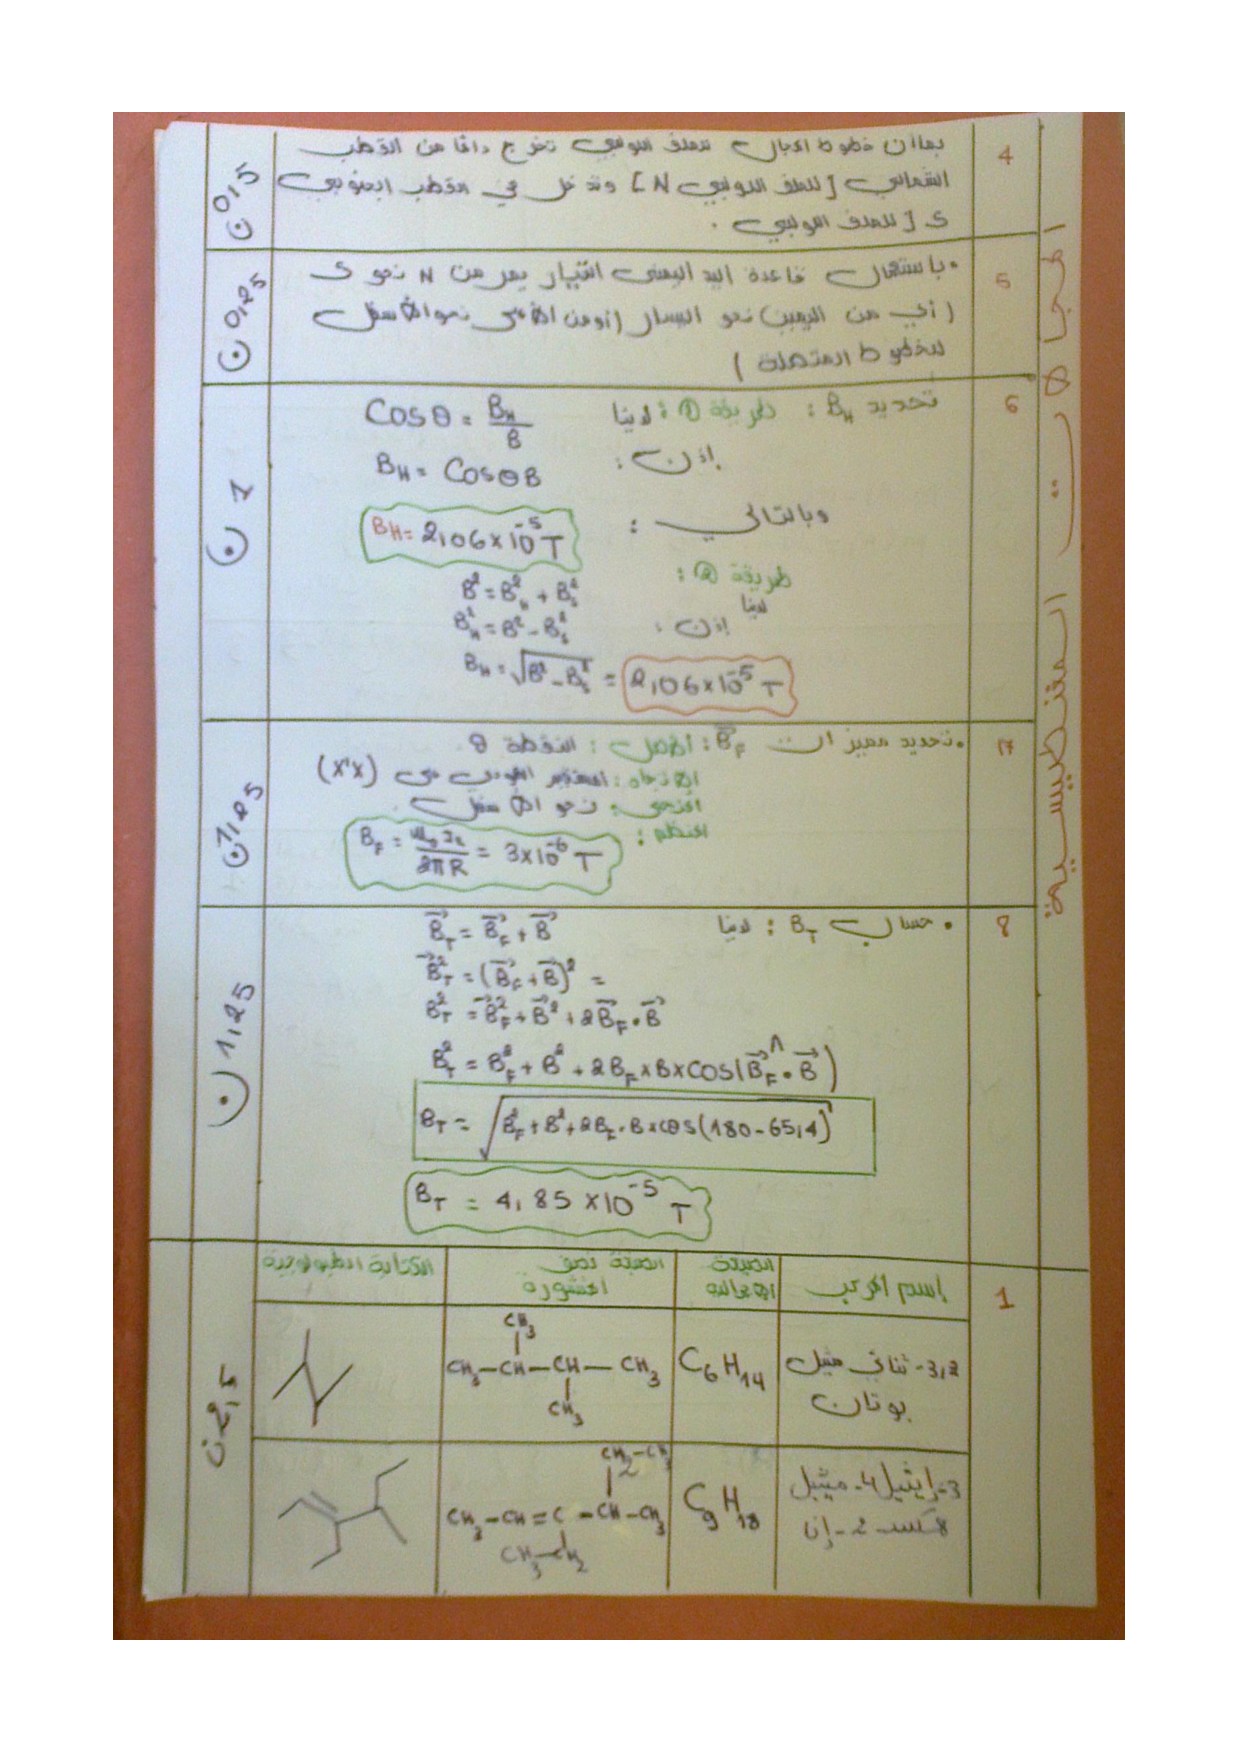 4
بما أن خطوط المجال للملف اللولبي تخرج دائما من القطب
الشمالي [للملف اللولبي N] وتدخل في القطب الجنوبي
S [للملف اللولبي.
0,5
ن
5
• باستعمال قاعدة اليد اليمنى التيار يمر من N نحو S
(أي من اليمين) نحو اليسار (أو من الأعلى نحو الأسفل
للخطوط المتصلة)
0,25
ن
6
تحديد BH : طريقة ① : لدينا Cosθ = BH/B
إذن : BH = CosθB
وبالتالي : BH = 2,06×10⁻⁵ T
طريقة ② :
لدينا B² = BH² + BS²
إذن : BH² = B² - BS²
BH = √(B² - BS²) = 2,06×10⁻⁵ T
1
ن
7
• تحديد مميزات B⃗F : الأصل : النقطة O
الاتجاه : المستقيم (x'x)
المنحى : نحو الأسفل.
المنظم : BF = μ₀ I₂/2πR = 3×10⁻⁶ T
1,25
ن
8
• حساب BT : لدينا B⃗T = B⃗F + B⃗
B⃗T² = (B⃗F + B⃗)² =
BT² = B⃗F² + B⃗² + 2B⃗F . B⃗
BT² = BF² + B² + 2BF×B×cos(B⃗F . B⃗)
BT = √(BF² + B² + 2BF . B×cos(180-65,4))
BT = 4,85×10⁻⁵ T
1,25
ن
المغنطيسية
1
إسم المركب
الصيغة الإجمالية
الصيغة نصف المنشورة
الكتابة الطبولوجية
3,2- ثنائي مثيل
بوتان
C6H14
CH3
CH3-CH-CH-CH3
CH3
3-إيثيل 4-ميثيل
هكس-2-إن
C9H18
CH2-CH3
CH3-CH=C-CH-CH3
CH3-CH2